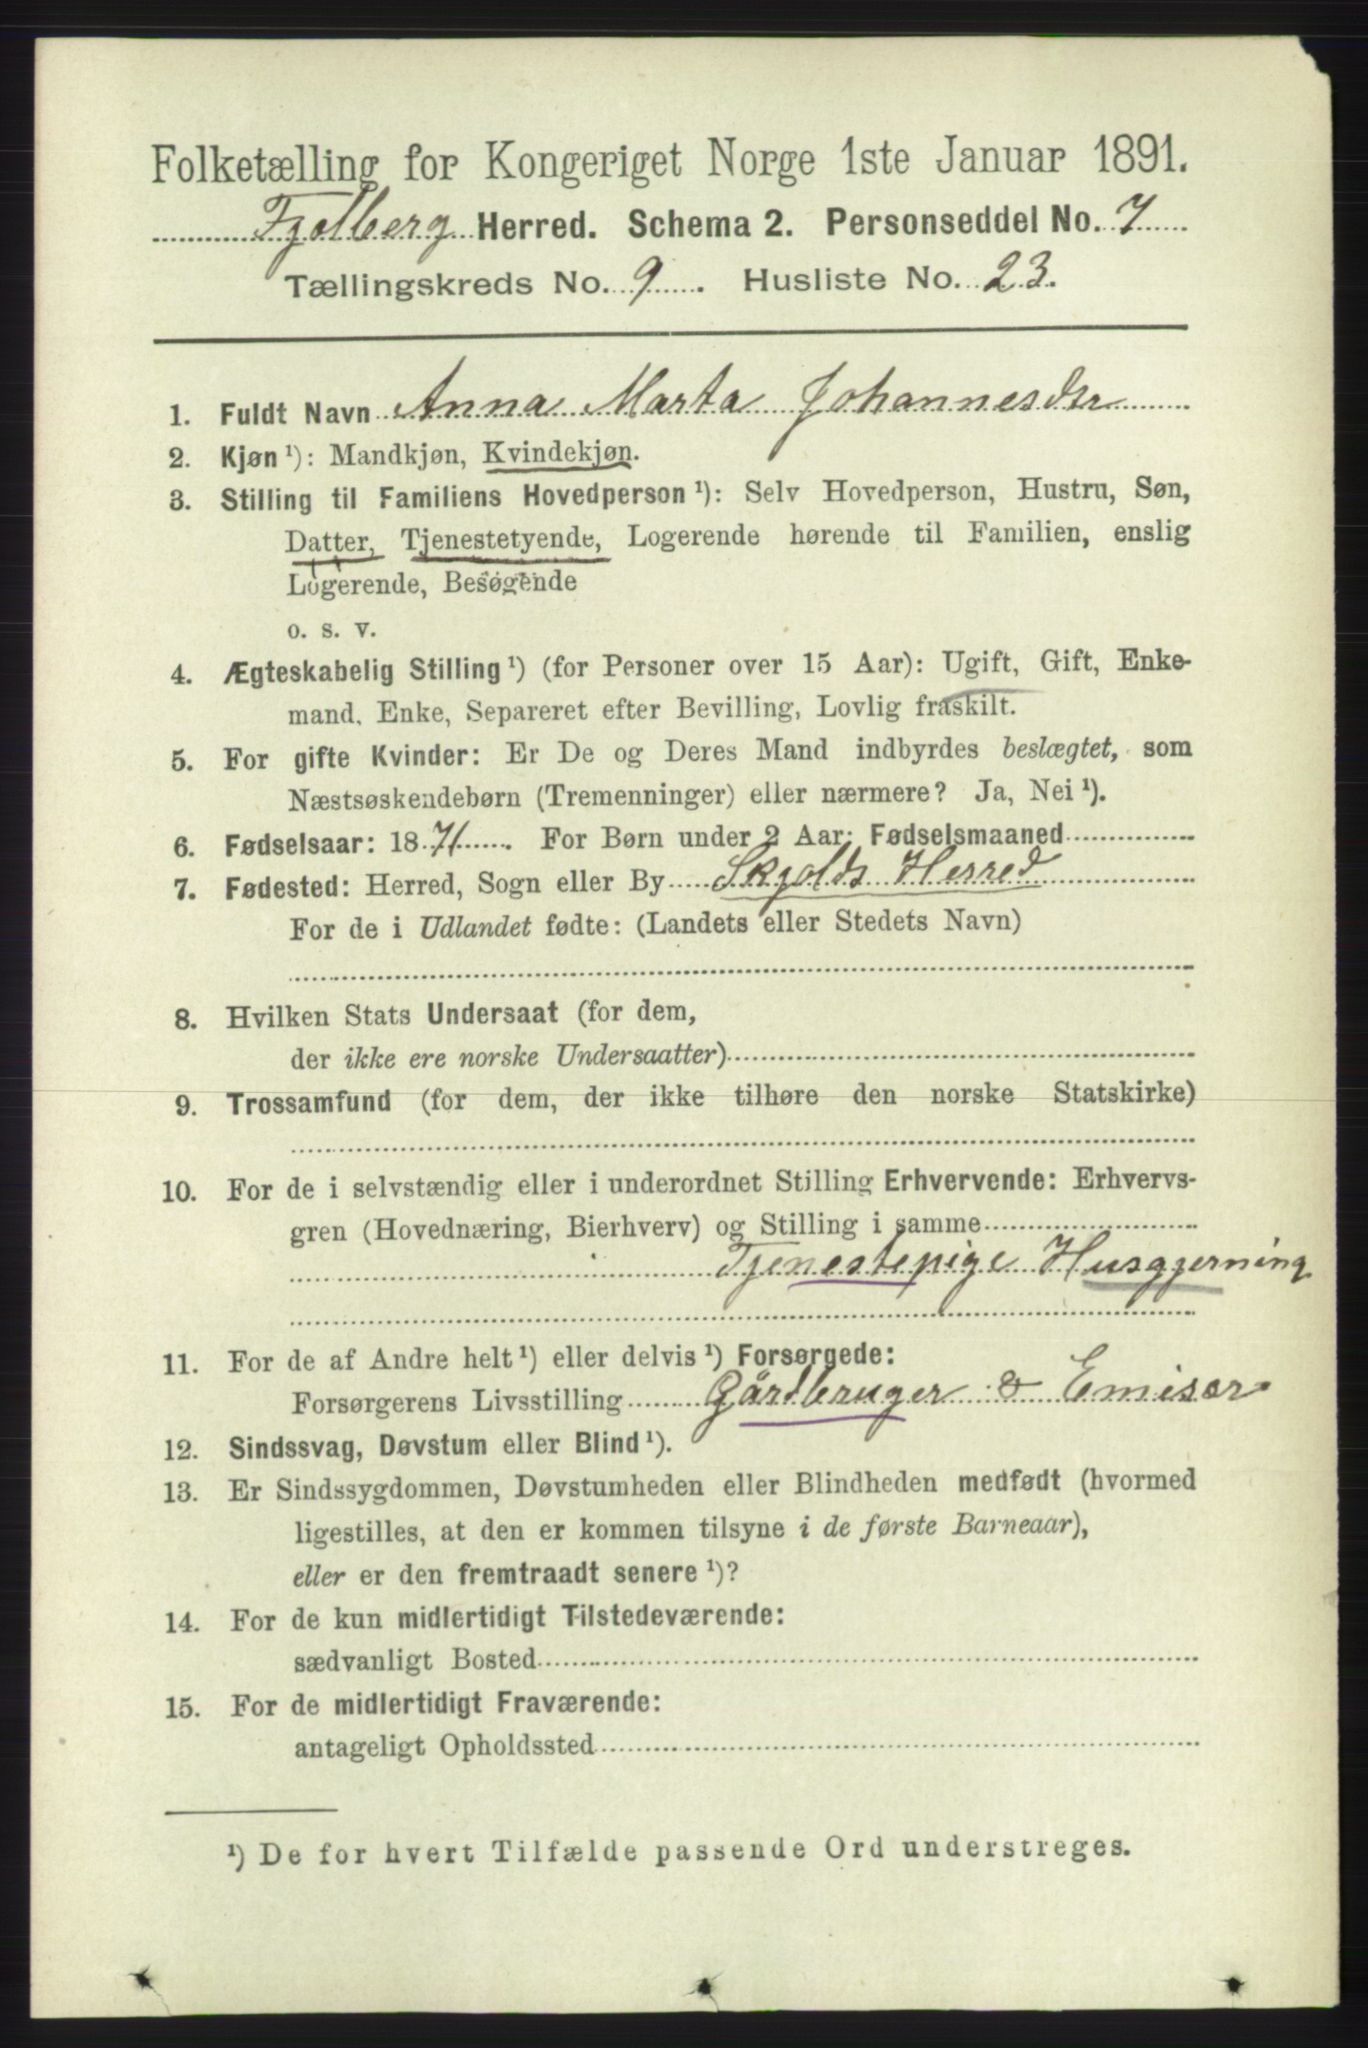 Folketælling for Kongeriget Norge 1ste Januar 1891.
Fjelberg Herred. Schema 2. Personseddel No. 7
Tællingskreds No. 9. Husliste No. 23.
1. Fuldt Navn Anna Marta Johannesdtr
2. Kjøn ¹): Mandkjøn, Kvindekjøn.
3. Stilling til Familiens Hovedperson ¹): Selv Hovedperson, Hustru, Søn,
Datter, Tjenestetyende, Logerende hørende til Familien, enslig
Logerende, Besøgende
o. s. v.
4. Ægteskabelig Stilling ¹) (for Personer over 15 Aar): Ugift, Gift, Enke-
mand, Enke, Separeret efter Bevilling, Lovlig fraskilt.
5. For gifte Kvinder: Er De og Deres Mand indbyrdes beslægtet, som
Næstsøskendebørn (Tremenninger) eller nærmere? Ja, Nei ¹).
6. Fødselsaar: 1871. For Børn under 2 Aar: Fødselsmaaned
7. Fødested: Herred, Sogn eller By Skjolds Herred
For de i Udlandet fødte: (Landets eller Stedets Navn)
8. Hvilken Stats Undersaat (for dem,
der ikke ere norske Undersaatter)
9. Trossamfund (for dem, der ikke tilhøre den norske Statskirke)
10. For de i selvstændig eller i underordnet Stilling Erhvervende: Erhvervs-
gren (Hovednæring, Bierhverv) og Stilling i samme
Tjenestepige Husgjerning
11. For de af Andre helt ¹) eller delvis ¹) Forsørgede:
Forsørgerens Livsstilling Gårdbruger & Emisær
12. Sindssvag, Døvstum eller Blind ¹).
13. Er Sindssygdommen, Døvstumheden eller Blindheden medfødt (hvormed
ligestilles, at den er kommen tilsyne i de første Barneaar),
eller er den fremtraadt senere ¹)?
14. For de kun midlertidigt Tilstedeværende:
sædvanligt Bosted
15. For de midlertidigt Fraværende:
antageligt Opholdssted
¹) De for hvert Tilfælde passende Ord understreges.